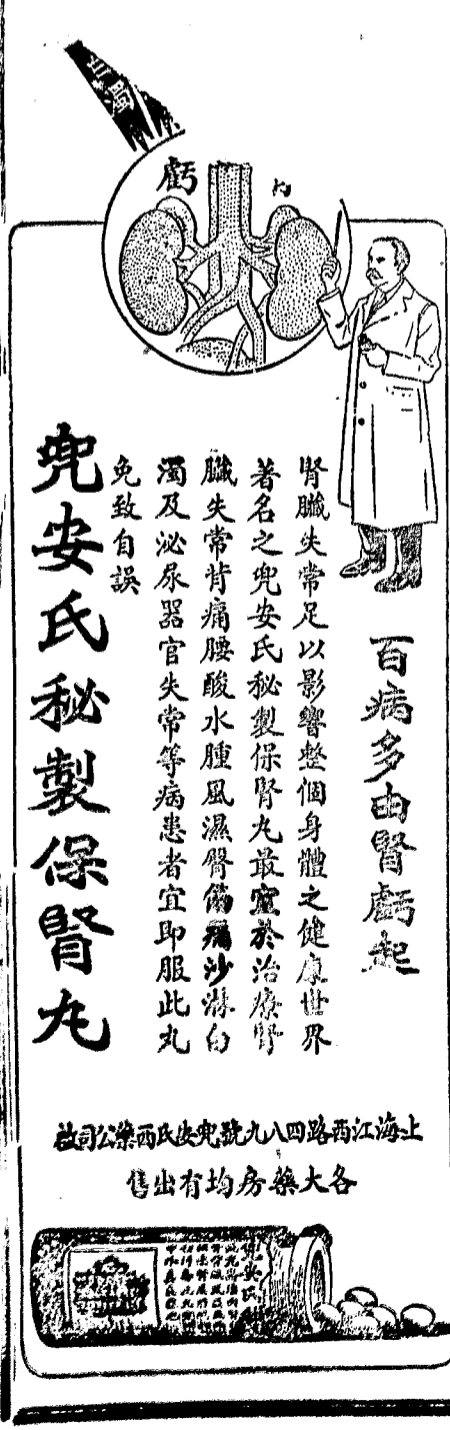 百病多由腎虧起
腎臟失常足以影響整個身體之健康世界
著名之兜安氏秘製保腎丸最宜於治療腎
臟失常背痛腰酸水腫風濕腎沙淋白
濁及泌尿器官失常等病患者宜即服此丸
免致自誤
兜安氏秘製保腎丸
上海江西路四八九號兜安氏西藥公司啟
各大藥房均有出售